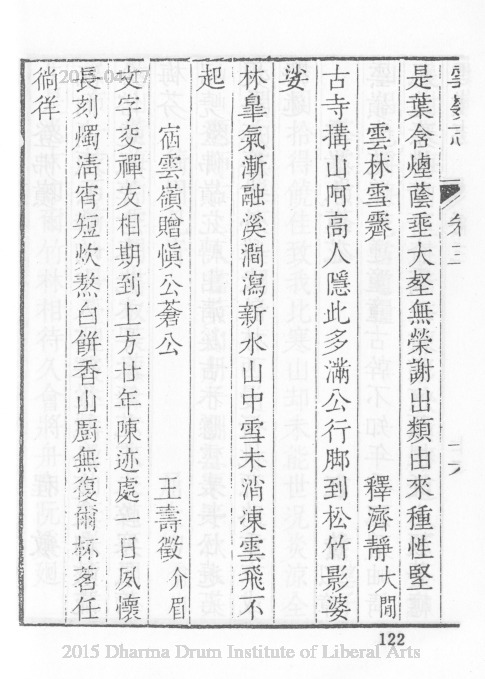 卷三
十六
是葉含煙蔭垂大壑無榮謝出類由來種性堅
雲林雪霽 釋濟靜 大閒
古寺搆山阿高人隱此多滿公行脚到松竹影婆
娑
林臯氣漸融溪澗瀉新水山中雪未消凍雲飛不
起
宿雲嶺贈愼公蒼公 王壽徵 介眉
文字交禪友相期到上方廿年陳迹處一日夙懷
長刻燭淸宵短炊熬白餠香山厨無復爾杯茗任
徜徉
122
2015-04-17
2015 Dharma Drum Institute of Liberal Arts